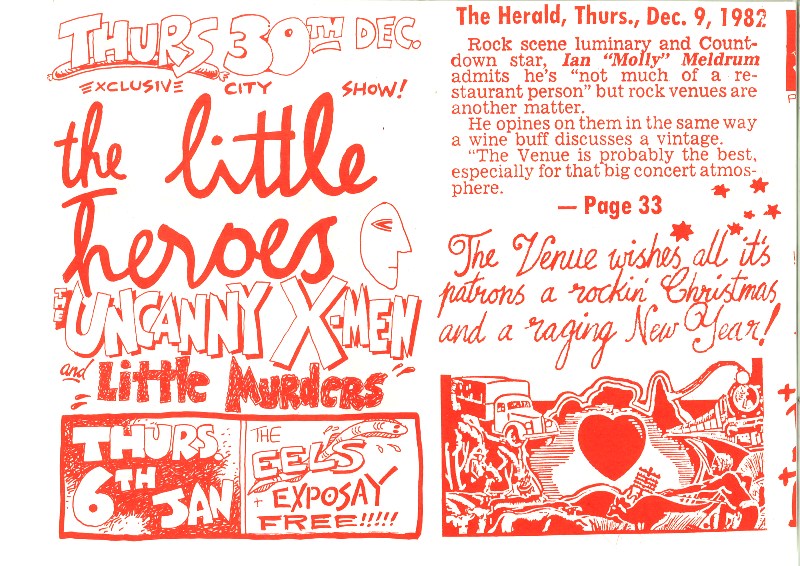 THURS 30TH DEC.
EXCLUSIVE CITY SHOW!
the little
heroes
THE UNCANNY X-MEN
and Little Murders
THURS.
6TH JAN
THE
EELS
+ EXPOSAY
FREE!!!!!
The Herald, Thurs., Dec. 9, 1982
Rock scene luminary and Count-
down star, Ian "Molly" Meldrum
admits he's "not much of a re-
staurant person" but rock venues are
another matter.
He opines on them in the same way
a wine buff discusses a vintage.
"The Venue is probably the best,
especially for that big concert atmos-
phere.
— Page 33
The Venue wishes all it's
patrons a rockin' Christmas
and a raging New Year!